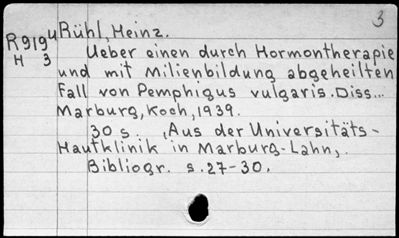 3
R919u Rühl, Heinz.
H 3 Ueber einen durch Hormontherapie
und mit Milienbildung abgeheilten
Fall von Pemphigus vulgaris. Diss...
Marburg, Koch, 1939.
30 s. ,Aus der Universitäts-
Hautklinik in Marburg-Lahn,.
Bibliogr. s.27-30.